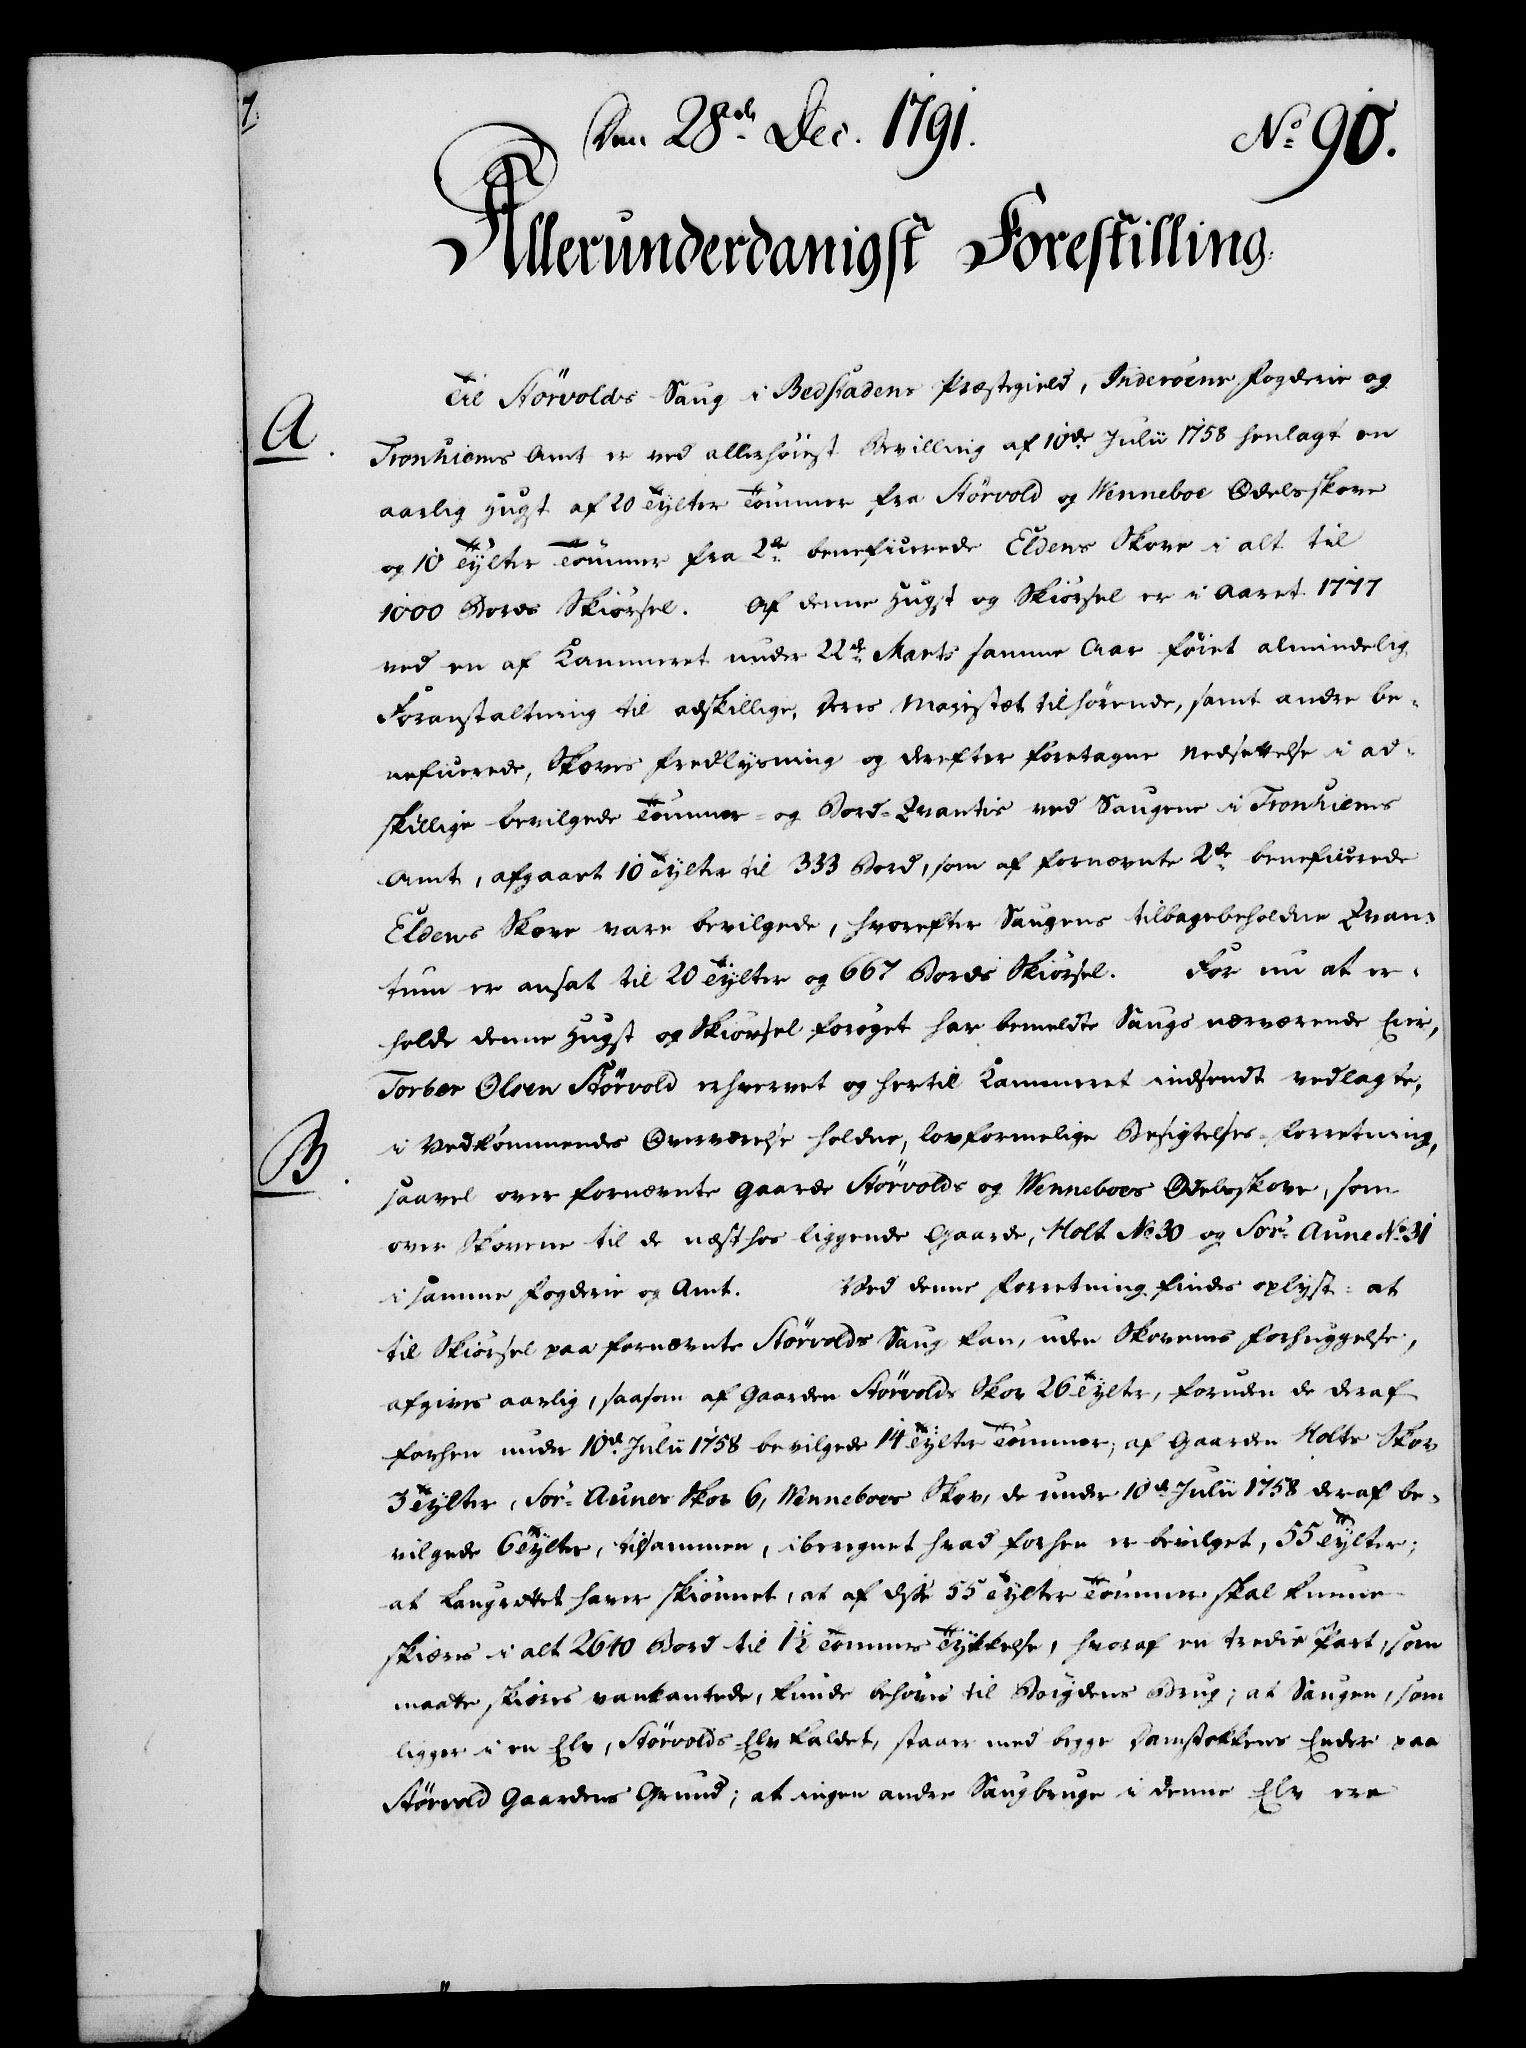 7.
Den 28de Dec. 1791.
No 90.
Allerunderdanigst Forestilling.
A.
Til Störvolds Saug i Bedstadens Præstegield, Inderöens Fogderie og
Tronhiems Amt er ved allerhöiest Bevilling af 10de Julii 1758 henlagt en
aarlig Hugst af 20 Tylter Tömmer fra Störvold og Wenneboe Odelsskove
og 10 Tylter Tömmer fra 2de beneficerede Eldens Skove i alt til
1000 Bords Skiörsel. Af denne Hugst og Skiörsel er i Aaret 1777
ved en af Kammeret under 22de Marts samme Aar föiet almindelig
Foranstaltning til adskillige, Deres Majestæt tilhörende, samt andre be-
neficerede, Skoves Fredlysning og derefter foretagne Nedsettelse i ad-
skillige bevilgede Tömmer- og Bord-Qvantis ved Saugene i Tronhiems
Amt, afgaaet 10 Tylter til 333 Bord, som af fornævnte 2de beneficerede
Eldens Skove vare bevilgede, hvorefter Saugens tilbagebeholdne Qvan-
tum er ansat til 20 Tylter og 667 Bords Skiörsel. For nu at er-
holde denne Hugst og Skiörsel foröget har bemeldte Saugs nærværende Eier,
Torber Olsen Störvold erhvervet og hertil Kammeret indsendt vedlagte,
B.
i Vedkommendes Overværelse holdne, lovformelige Besigtelses-Forretning,
saavel over fornævnte Gaarde Störvolds og Wenneboes Odelsskove, som
over Skovene til de næsthos liggende Gaarde, Holt No 30 og Sör-Aune No 31
i samme Fogderie og Amt. Ved denne Forretning findes oplyst: at
til Skiörsel paa fornævnte Störvolds Saug kan, uden Skovens Forhuggelse,
afgives aarlig, saasom af Gaarden Störvolds Skov 26 Tylter, foruden de deraf
forhen under 10de Julii 1758 bevilgede 14 Tylter Tömmer; af Gaarden Holts Skov
3 Tylter, Sör-Aunes Skov 6, Wenneboes Skov, de under 10de Julii 1758 deraf be-
vilgede 6 Tylter, tilsammen, iberegnet hvad forhen er bevilget, 55 Tylter;
at Laugrettet haver skiönnet, at af disse 55 Tylter Tömmer skal kunne
skiæres i alt 2640 Bord til 1½ Tommes Tykkelse, hvoraf en tredie Part, som
maatte skiæres vankantede, kunde behöves til Böigdens Brug; at Saugen, som
ligger i en Elv, Störvolds-Elv kaldet, staaer med begge Damstokkens Ender paa
Störvold Gaardens Grund; at ingen andre Saugbruge i denne Elv ere